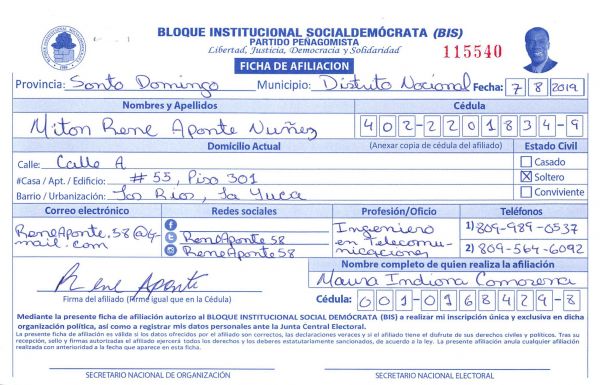 BLOQUE INSTITUCIONAL SOCIALDEMÓCRATA (BIS)
PARTIDO PEÑAGOMISTA
Libertad, Justicia, Democracia y Solidaridad
115540
FICHA DE AFILIACION
Provincia: Santo Domingo Municipio: Distrito Nacional Fecha: 7 8 2019
Nombres y Apellidos Cédula
Milton Rene Aponte Nuñez 402-2201834-9
Domicilio Actual (Anexar copia de cédula del afiliado) Estado Civil
Calle: Calle A Casado
#Casa / Apt. / Edificio: # 55, Piso 301 Soltero
Barrio / Urbanización: Los Rios, La Yuca Conviviente
Correo electrónico Redes sociales Profesión/Oficio Teléfonos
ReneAponte.58@g-mail.com
ReneAponte58
ReneAponte58
Ingeniero en Telecomunicaciones
1) 809-989-0537
2) 809-564-6092
Nombre completo de quien realiza la afiliación
Rene Aponte
Firma del afiliado (Firme igual que en la Cédula)
Cédula: 001-0168429-8
Mediante la presente ficha de afiliación autorizo al BLOQUE INSTITUCIONAL SOCIAL DEMÓCRATA (BIS) a realizar mi inscripción única y exclusiva en dicha
organización política, así como a registrar mis datos personales ante la Junta Central Electoral.
La presente ficha de afiliación es válida si los datos ofrecidos por el afiliado son correctos, las declaraciones veraces y si el afiliado tiene el disfrute de sus derechos civiles y políticos. Tras su
recepción, sello y firmas autorizadas el afiliado ejercerá todos los derechos y los deberes estatutariamente sancionados, de acuerdo a la ley. La presente afiliación anula cualquier afiliación
realizada con anterioridad a la fecha que aparece en esta ficha.
SECRETARIO NACIONAL DE ORGANIZACIÓN SECRETARIO NACIONAL ELECTORAL